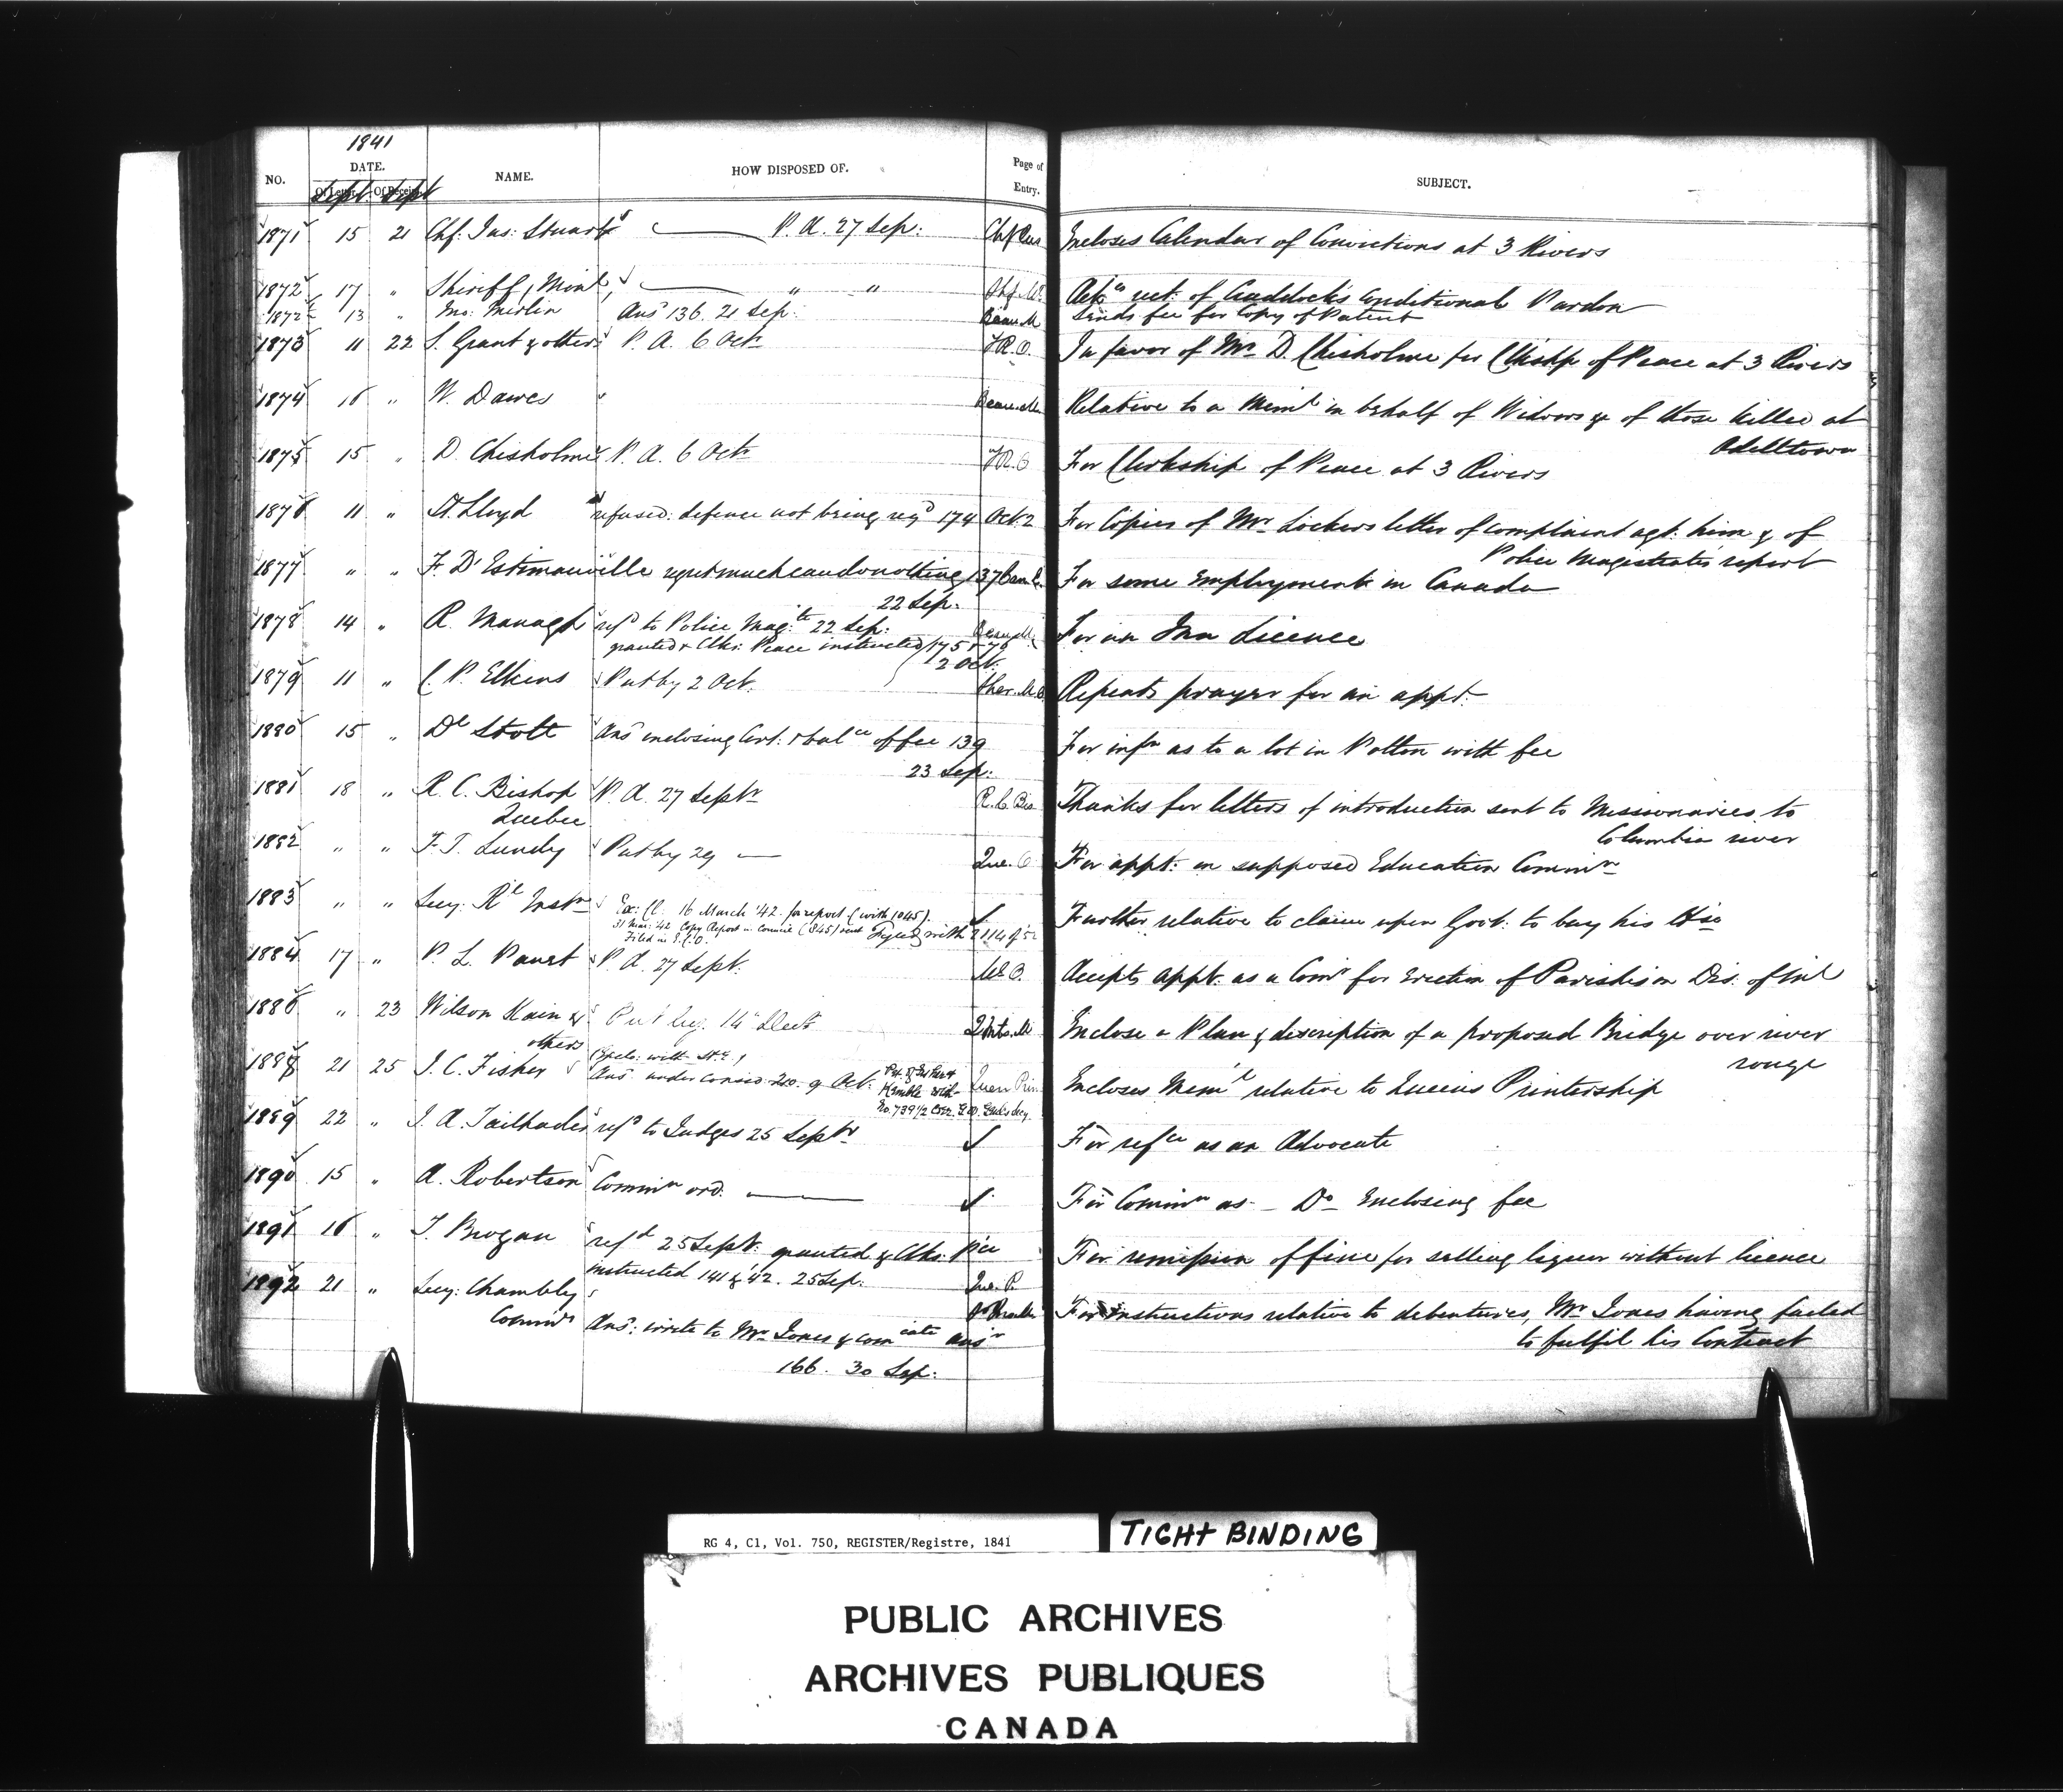 1841
NO. DATE. NAME. HOW DISPOSED OF. Page of Entry. SUBJECT.
Of Letter Of Receipt
Sept Sept
1871 15 21 Chf: Jus: Stuart P. A. 27 Sep: Encloses Calendar of Convictions at 3 Rivers
1872 17 " Sheriff, Montl " " Ackn rect. of Craddock's Conditional Pardon
1872½ 13 " Ansd 136. 21 Sep: Beau.M Sends fee for Copy of Patent
1873 11 22 S. Grant & others P. A. 6 Octr T.R.O. In favor of Mr D. Chisholme for Clkshp of Peace at 3 Rivers
1874 16 " W. Dawes " Relative to a Meml in behalf of Widows &c of those killed at
Odelltown
1875 15 " D. Chisholme P. A. 6 Octr T.R.O For Clerkship of Peace at 3 Rivers
1876 11 " Lloyd refused: defence not being reqd 174 Oct 2 For Copies of Mr Locker's letter of complaint agt. him & of
Police Magistrate's report
1877 " " F. D'Estimauville regret much can do nothing 137 For some Employment in Canada
22 Sep:
1878 14 " R. Managh refd to Police Magte 22 Sep: For an Inn Licence
granted & Clks: Peace instructed 175 & 76
2 Oct:
1879 11 " C. P. Elkins Put by 2 Oct. Sher.M.O Repeats prayer for an appt.
1880 15 " Dl Stott Ansd enclosing Cert: & balce of fee 139 For infn as to a lot in Potton with fee
23 Sep:
1881 18 " R. C. Bishop P. A. 27 Septr R.C. Bis Thanks for letters of introduction sent to Missionaries to
Quebec Columbia river
1882 " " F. J. Lundy Put by 29 — Que. C For appt. on supposed Education Commn
1883 " " Secy: Rl Instn Ex: C. 16 March '42. for report (with 1045). Further relative to claim upon Govt: to buy his Hse
31 Mar: '42 Copy Report in Council (845) sent
Filed in E.C.O.
1884 17 " P. L. P. A. 27 Sept. Accepts appt. as a Comr for Erection of Parishes in Dis. of Ml
1886 " 23 Wilson Kain & Put by. 14 Enclose a Plan & description of a proposed Bridge over river
others rouge
1888 21 25 J. C. Fisher Ansd under consid: 210. 9 Oct. Encloses Meml relative to Queens Printership
1889 22 " J. A. Tailhades refd to Judges 25 Septr For refce as an Advocate
1890 15 " A. Robertson Commn ord. For Commn as — Do Enclosing fee
1891 16 " T. Brogan refd 25 Sept. granted & Clks: P'ce For remission of fine for selling liquor without licence
instructed 141 & '42. 25 Sep: Que. P.
1892 21 " Secy: Chambly For instructions relative to debentures, Mr Jones having failed
Commrs Ansd: write to Mr Jones & comcate ansr to fulfil his Contract
166. 30 Sep:
RG 4, C1, Vol. 750, REGISTER/Registre, 1841
TIGHT BINDING
PUBLIC ARCHIVES
ARCHIVES PUBLIQUES
CANADA